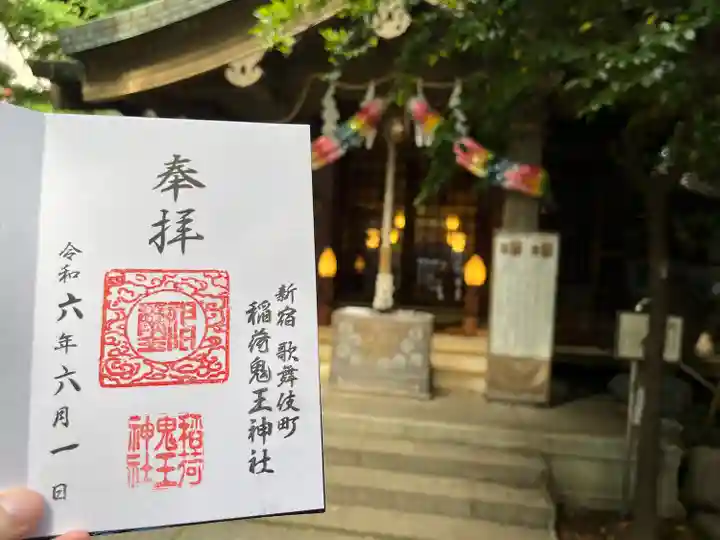 奉拝
新宿 歌舞伎町
稲荷鬼王神社
稲荷
鬼王
神社
令和六年六月一日